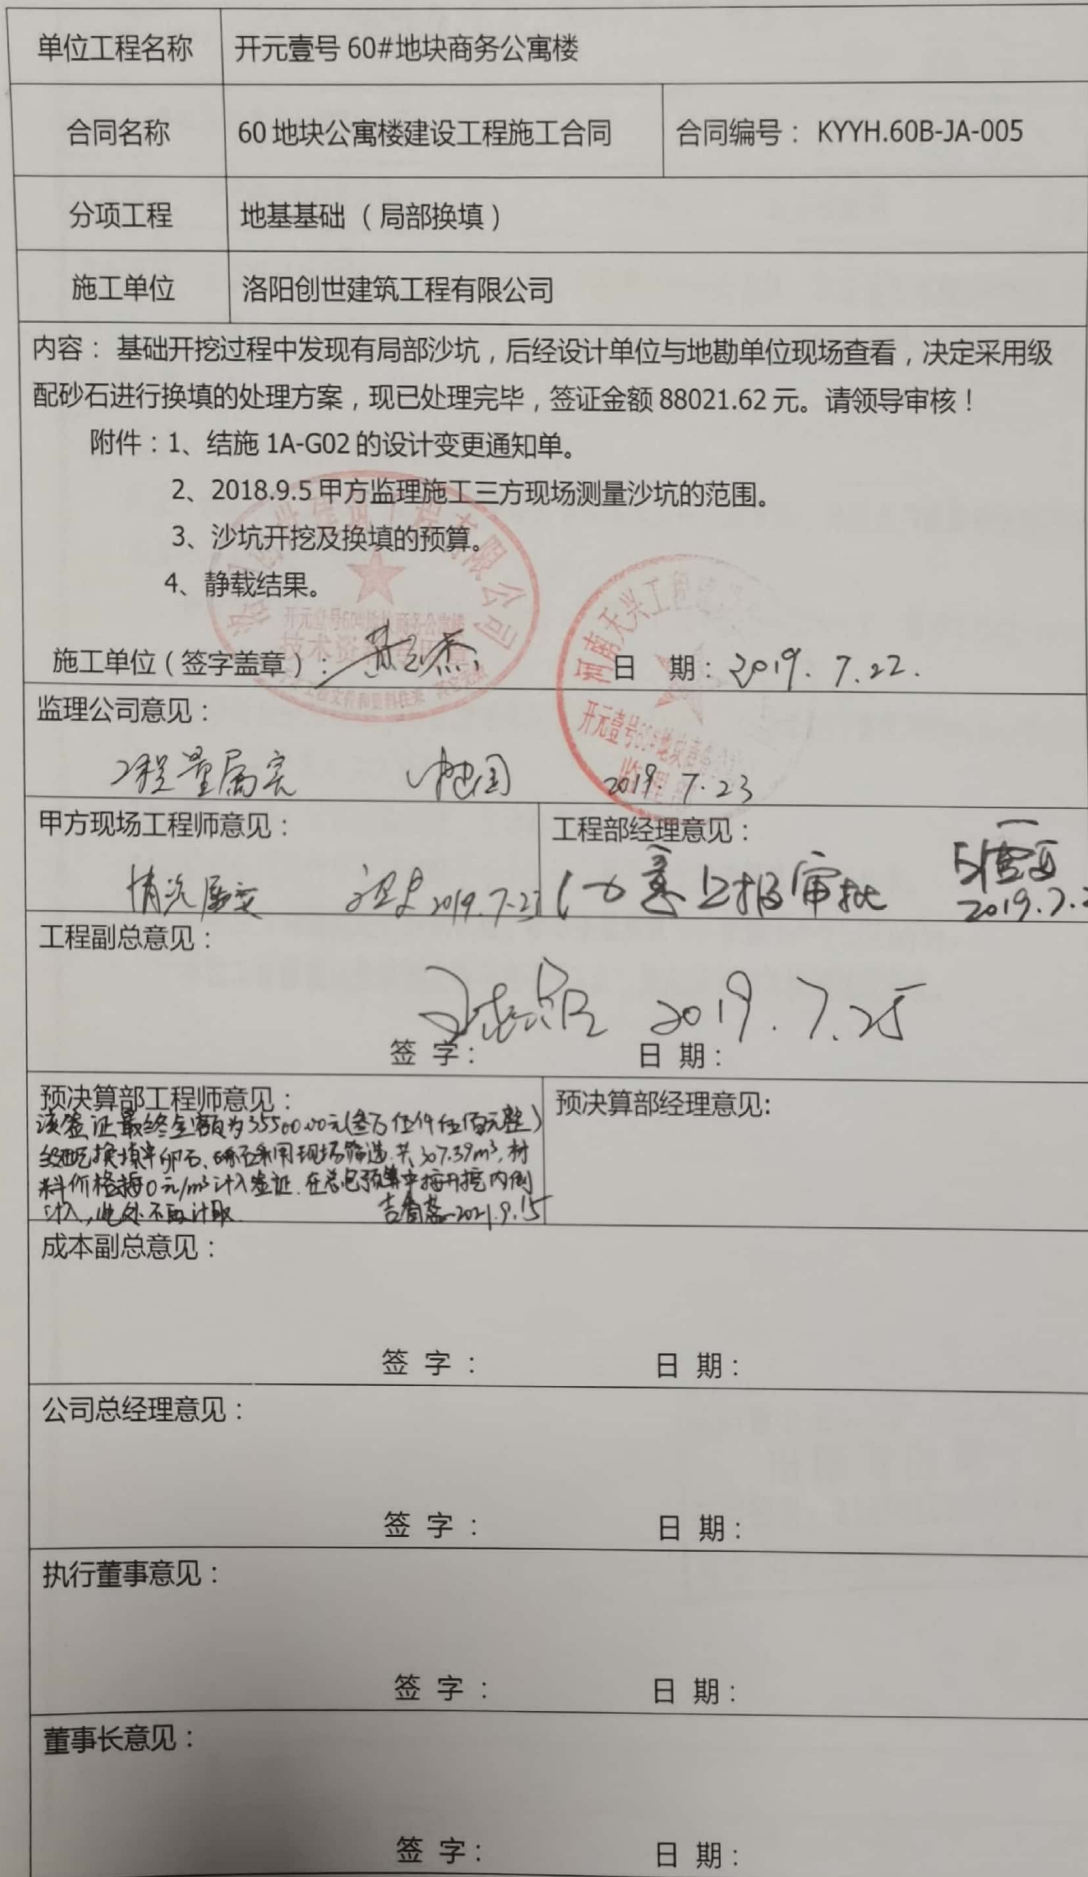 单位工程名称 开元壹号 60#地块商务公寓楼
合同名称 60 地块公寓楼建设工程施工合同 合同编号： KYYH.60B-JA-005
分项工程 地基基础（局部换填）
施工单位 洛阳创世建筑工程有限公司
内容： 基础开挖过程中发现有局部沙坑，后经设计单位与地勘单位现场查看，决定采用级
配砂石进行换填的处理方案，现已处理完毕，签证金额 88021.62 元。请领导审核！
附件：1、结施 1A-G02 的设计变更通知单。
2、2018.9.5 甲方监理施工三方现场测量沙坑的范围。
3、沙坑开挖及换填的预算。
4、静载结果。
施工单位（签字盖章）： 日 期：2019. 7.22.
监理公司意见：
工程量属实 2019. 7.23
甲方现场工程师意见： 工程部经理意见：
情况属实 2019.7.23 上报审批 2019.7.2
工程副总意见：
2019.7.25
签 字： 日 期：
预决算部工程师意见： 预决算部经理意见:
该签证最终金额为35500.00元(叁万伍仟伍佰元整)
级配换填中卵石、砾石采用现场筛选,共307.39m³,材
料价格按0元/m³计入签证.在总包预算中按开挖内倒
计入,此处不再计取. 2021.9.15
成本副总意见：
签 字： 日 期：
公司总经理意见：
签 字： 日 期：
执行董事意见：
签 字： 日 期：
董事长意见：
签 字： 日 期：